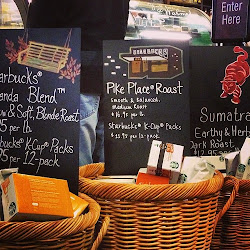 Enter
Here
Starbucks®
anda Blend™
w & Soft, Blonde Roast
95 per lb.
rbucks® K-Cup® Packs
95 per 12-pack
Pike Place® Roast
Smooth & Balanced,
Medium Roast
per lb.
Starbucks® K-Cup® Packs
per 12-pack
Sumatra
Earthy & He
Dark Roast